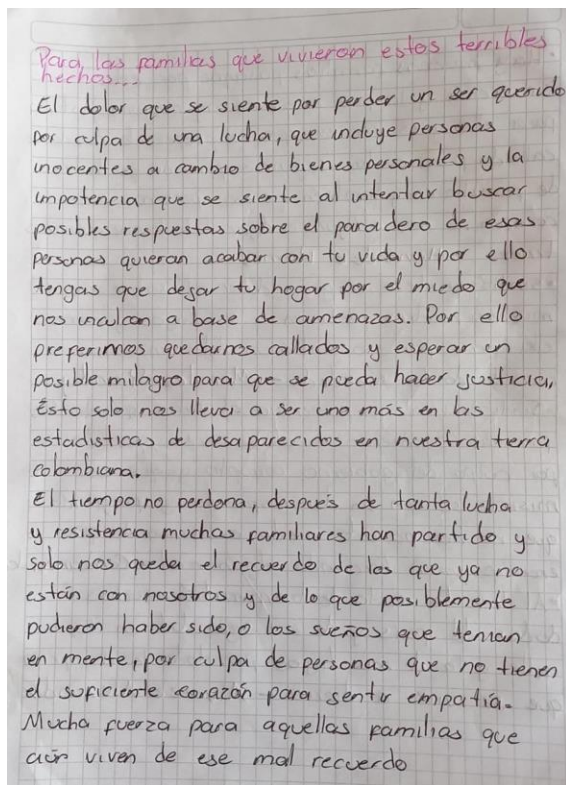 Para las familias que vivieron estos terribles
hechos...
El dolor que se siente por perder un ser querido
por culpa de una lucha, que incluye personas
inocentes a cambio de bienes personales y la
impotencia que se siente al intentar buscar
posibles respuestas sobre el paradero de esas
personas quieran acabar con tu vida y por ello
tengas que dejar tu hogar por el miedo que
nos inculcan a base de amenazas. Por ello
preferimos quedarnos callados y esperar un
posible milagro para que se pueda hacer justicia,
Ésto solo nos lleva a ser uno más en las
estadisticas de desaparecidos en nuestra tierra
colombiana.
El tiempo no perdona, después de tanta lucha
y resistencia muchas familiares han partido y
solo nos queda el recuerdo de los que ya no
están con nosotros y de lo que posiblemente
pudieron haber sido, o los sueños que tenian
en mente, por culpa de personas que no tienen
el suficiente corazón para sentir empatía.
Mucha fuerza para aquellas familias que
aún viven de ese mal recuerdo